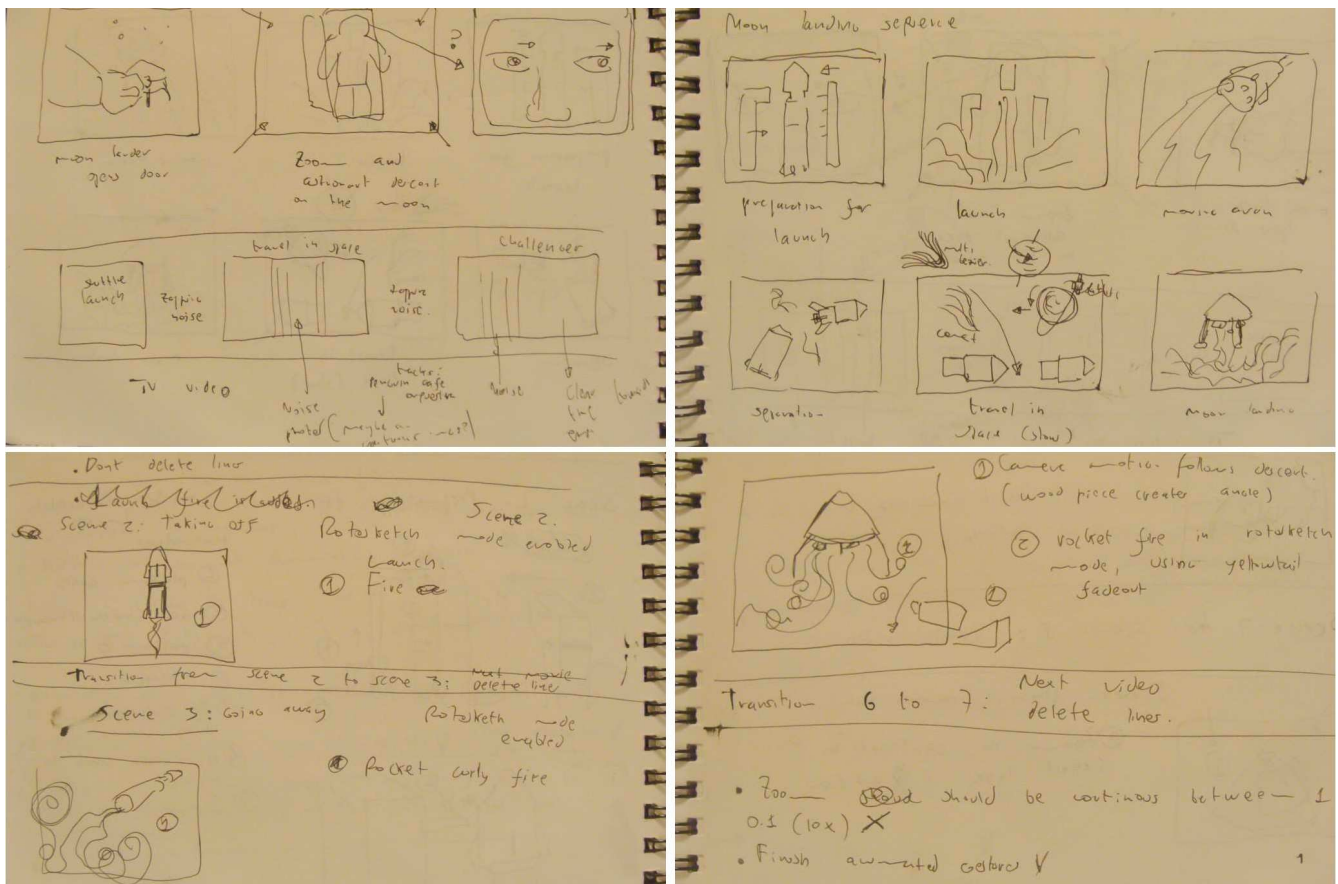 ?
moon lander
opens door
Zoom and
astronaut descent
on the moon
travel in space
Challenger
shuttle
launch
Zapping
noise
Zapping
noise.
TV video
Noise
tracks:
penguin cafe
orquestra
Noise
Noise
photos (maybe
Clean
Moon landing sequence
preparation for
launch
launch
moving away
comet
separation
travel in
space (slow)
moon landing
. Dont delete lines
. Launch fire
Scene 2: Taking off
Rotosketch mode enabled
Scene 2.
Launch.
① Fire
1
Transition from scene 2 to scene 3: Next movie
Delete lines
Scene 3: Going away
Rotosketh mode
enabled
Rocket curly fire
1
① Camera motion follows descent.
(wood piece creates angle)
② rocket fire in rotosketch
mode, using yellowtail
fadeout
2
1
Transition 6 to 7: Next video
delete lines.
• Zoom should be continous between 1
0.1 (10x) X
• Finish animated gestures V
1